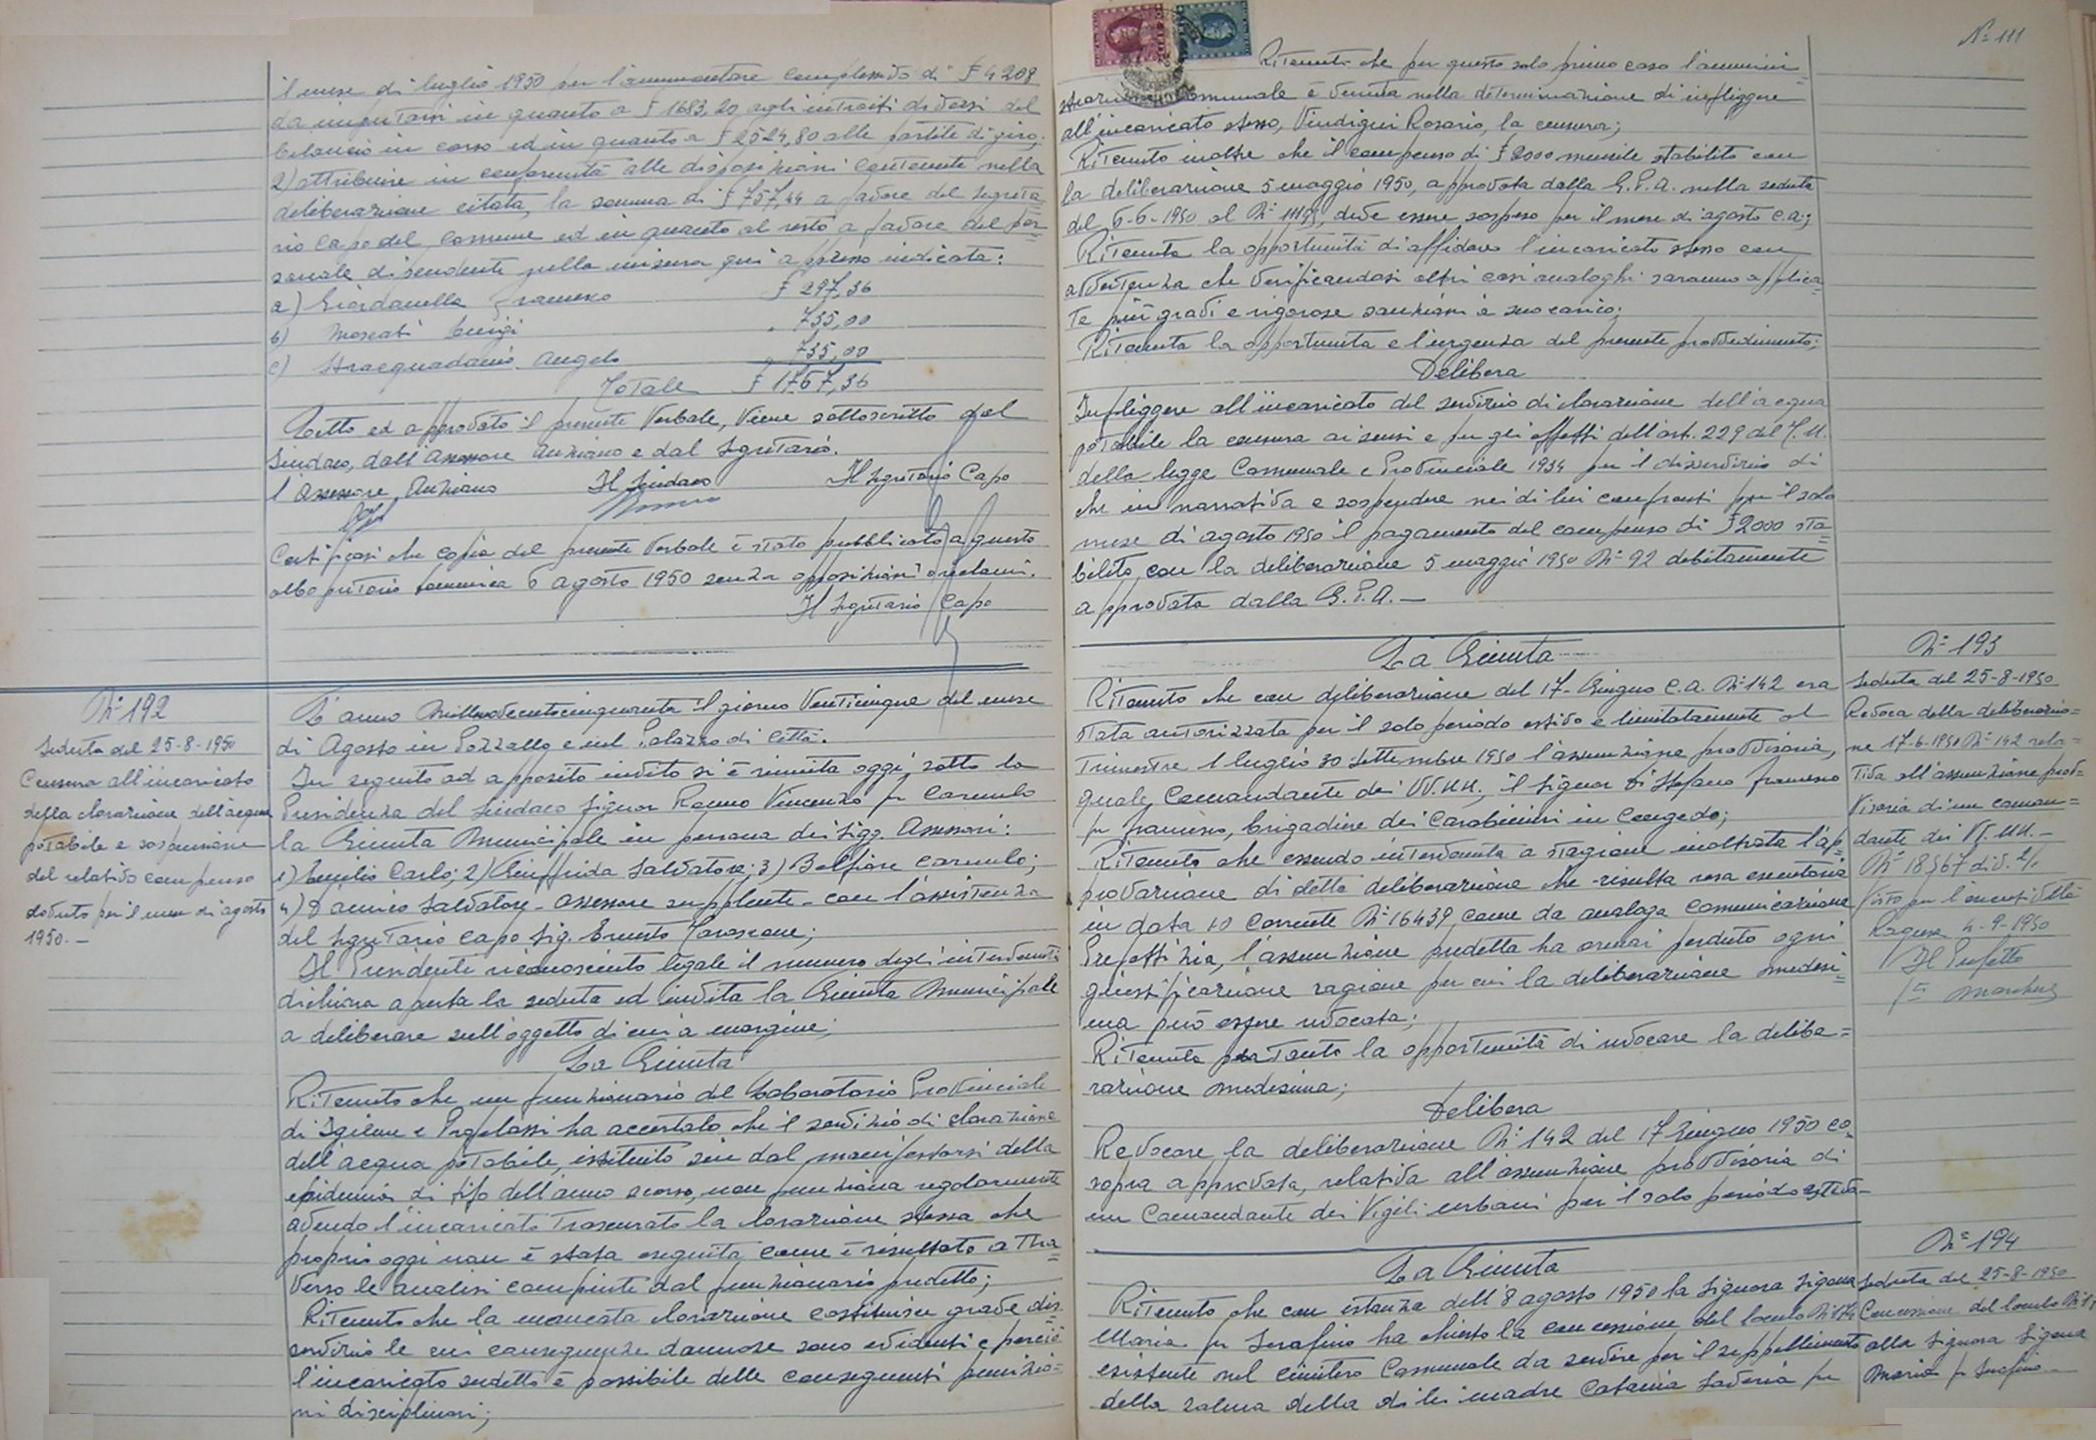 il mese di luglio 1950 per l'ammontare complessivo di £ 4208
da imputarsi in quanto a £ 1683,20 agli introiti diversi del
bilancio in corso ed in quanto a £ 2524,80 alle partite di giro;
2) attribuire in conformità alle disposizioni contenute nella
deliberazione citata, la somma di £ 757,44 a favore del Segreta
rio Capo del Comune ed in quanto al resto a favore del per=
sonale dipendente nella misura qui appresso indicata:
a) Giordanella Francesco £ 297,36
b) Moscati Luigi " 735,00
c) Stracquadanio Angelo " 735,00
Totale £ 1767,36
Letto ed approvato il presente Verbale, viene sottoscritto dal
Sindaco, dall'Assessore Anziano e dal Segretario.
l'Assessore Anziano Il Sindaco Il Segretario Capo
Certificasi che copia del presente Verbale è stato pubblicato a questo
albo pretorio domenica 6 agosto 1950 senza opposizioni o reclami.
Il Segretario Capo
N° 192
Seduta del 25-8-1950
Censura all'incaricato
della clorazione dell'acqua
potabile e sospensione
del relativo compenso
dovuto per il mese di agosto
1950.-
L'anno Millenovecentocinquanta il giorno Venticinque del mese
di Agosto in Pozzallo e nel Palazzo di Città.
In seguito ad apposito invito si è riunita oggi, sotto la
Presidenza del Sindaco Signor Vincenzo fu Carmelo
la Giunta Municipale in persona dei Sigg. Assessori:
1) Carlo; 2) Giuffrida Salvatore; 3) Belfiore Carmelo;
4) D'amico Salvatore - Assessore supplente - con l'assistenza
del Segretario Capo Sig. Ernesto
Il Presidente riconosciuto legale il numero degli intervenuti
dichiara aperta la seduta ed invita la Giunta Municipale
a deliberare sull'oggetto di cui a margine;
La Giunta
Ritenuto che un funzionario del Laboratorio Provinciale
di Igiene e Profilassi ha accertato che il servizio di clorazione
dell'acqua potabile, istituito sin dal manifestarsi della
epidemia di tifo dell'anno scorso, non funziona regolarmente
avendo l'incaricato trascurato la clorazione stessa che
proprio oggi non è stata eseguita come è risultato attra=
verso le analisi compiute dal funzionario predetto;
Ritenuto che la mancata clorazione costituisce grave dis=
servizio le cui conseguenze dannose sono evidenti e perciò
l'incaricato sudetto è passibile delle conseguenti punizio=
ni disciplinari;
N° 111
Ritenuto che per questo solo primo caso l'ammini=
strazione Comunale è venuta nella determinazione di infliggere
all'incaricato stesso, Vindigni Rosario, la censura;
Ritenuto inoltre che il compenso di £ 2000 mensile stabilito con
la deliberazione 5 maggio 1950, approvata dalla G.P.A. nella seduta
del 6-6-1950 al N° deve essere sospeso per il mese di agosto c.a.;
Ritenuta la opportunità di diffidare l'incaricato stesso con
avvertenza che verificandosi altri casi analoghi saranno applica=
te più gravi e rigorose sanzioni a suo carico;
Ritenuta la opportunità e l'urgenza del presente provvedimento;
Delibera
Infliggere all'incaricato del servizio di clorazione dell'acqua
potabile la censura ai sensi e per gli effetti dell'art. 229 del T.U.
della legge Comunale e Provinciale 1934 per il disservizio di
che in narrativa e sospendere nei di lui confronti per il solo
mese di agosto 1950 il pagamento del compenso di £ 2000 sta=
bilito con la deliberazione 5 maggio 1950 N° 92 debitamente
approvata dalla G.P.A.-
La Giunta
Ritenuto che con deliberazione del 17-Giugno c.a. N° 142 era
stata autorizzata per il solo periodo estivo e limitatamente al
trimestre 1 luglio 30 Settembre 1950 l'assunzione provvisoria,
quale Comandante dei VV.UU., il Signor Di Stefano Francesco
fu Francesco, brigadiere dei Carabinieri in Congedo;
Ritenuto che essendo intervenuta a stagione inoltrata l'ap=
provazione di detta deliberazione che risulta resa esecutoria
in data 10 corrente N° 16439, come da analoga comunicazione
Prefettizia, l'assunzione predetta ha ormai perduto ogni
giustificazione ragione per cui la deliberazione medesi=
ma può essere revocata;
Ritenuta pertanto la opportunità di revocare la delibe=
razione medesima;
Delibera
Revocare la deliberazione N° 142 del 17 Giugno 1950 co=
sopra approvata, relativa all'assunzione provvisoria di
un Comandante dei Vigili urbani per il solo periodo estivo-
N° 193
Seduta del 25-8-1950
Revoca della deliberazio=
ne 17-6-1950 N° 142 rela=
tiva all'assunzione prov=
visoria di un coman=
dante dei VV.UU.-
N° 18367 div. 2/1
Visto per l'esecutività
Ragusa 4-9-1950
Il Prefetto
La Giunta
Ritenuto che con istanza dell'8 agosto 1950 la Signora Sigona
Maria fu Serafino ha chiesto la concessione del loculo N° 174
esistente nel cimitero Comunale da servire per il seppellimento
della salma della di lei madre Catania Saveria fu
N° 194
Seduta del 25-8-1950
Concessione del loculo N°
alla Signora Sigona
Maria fu Serafino-